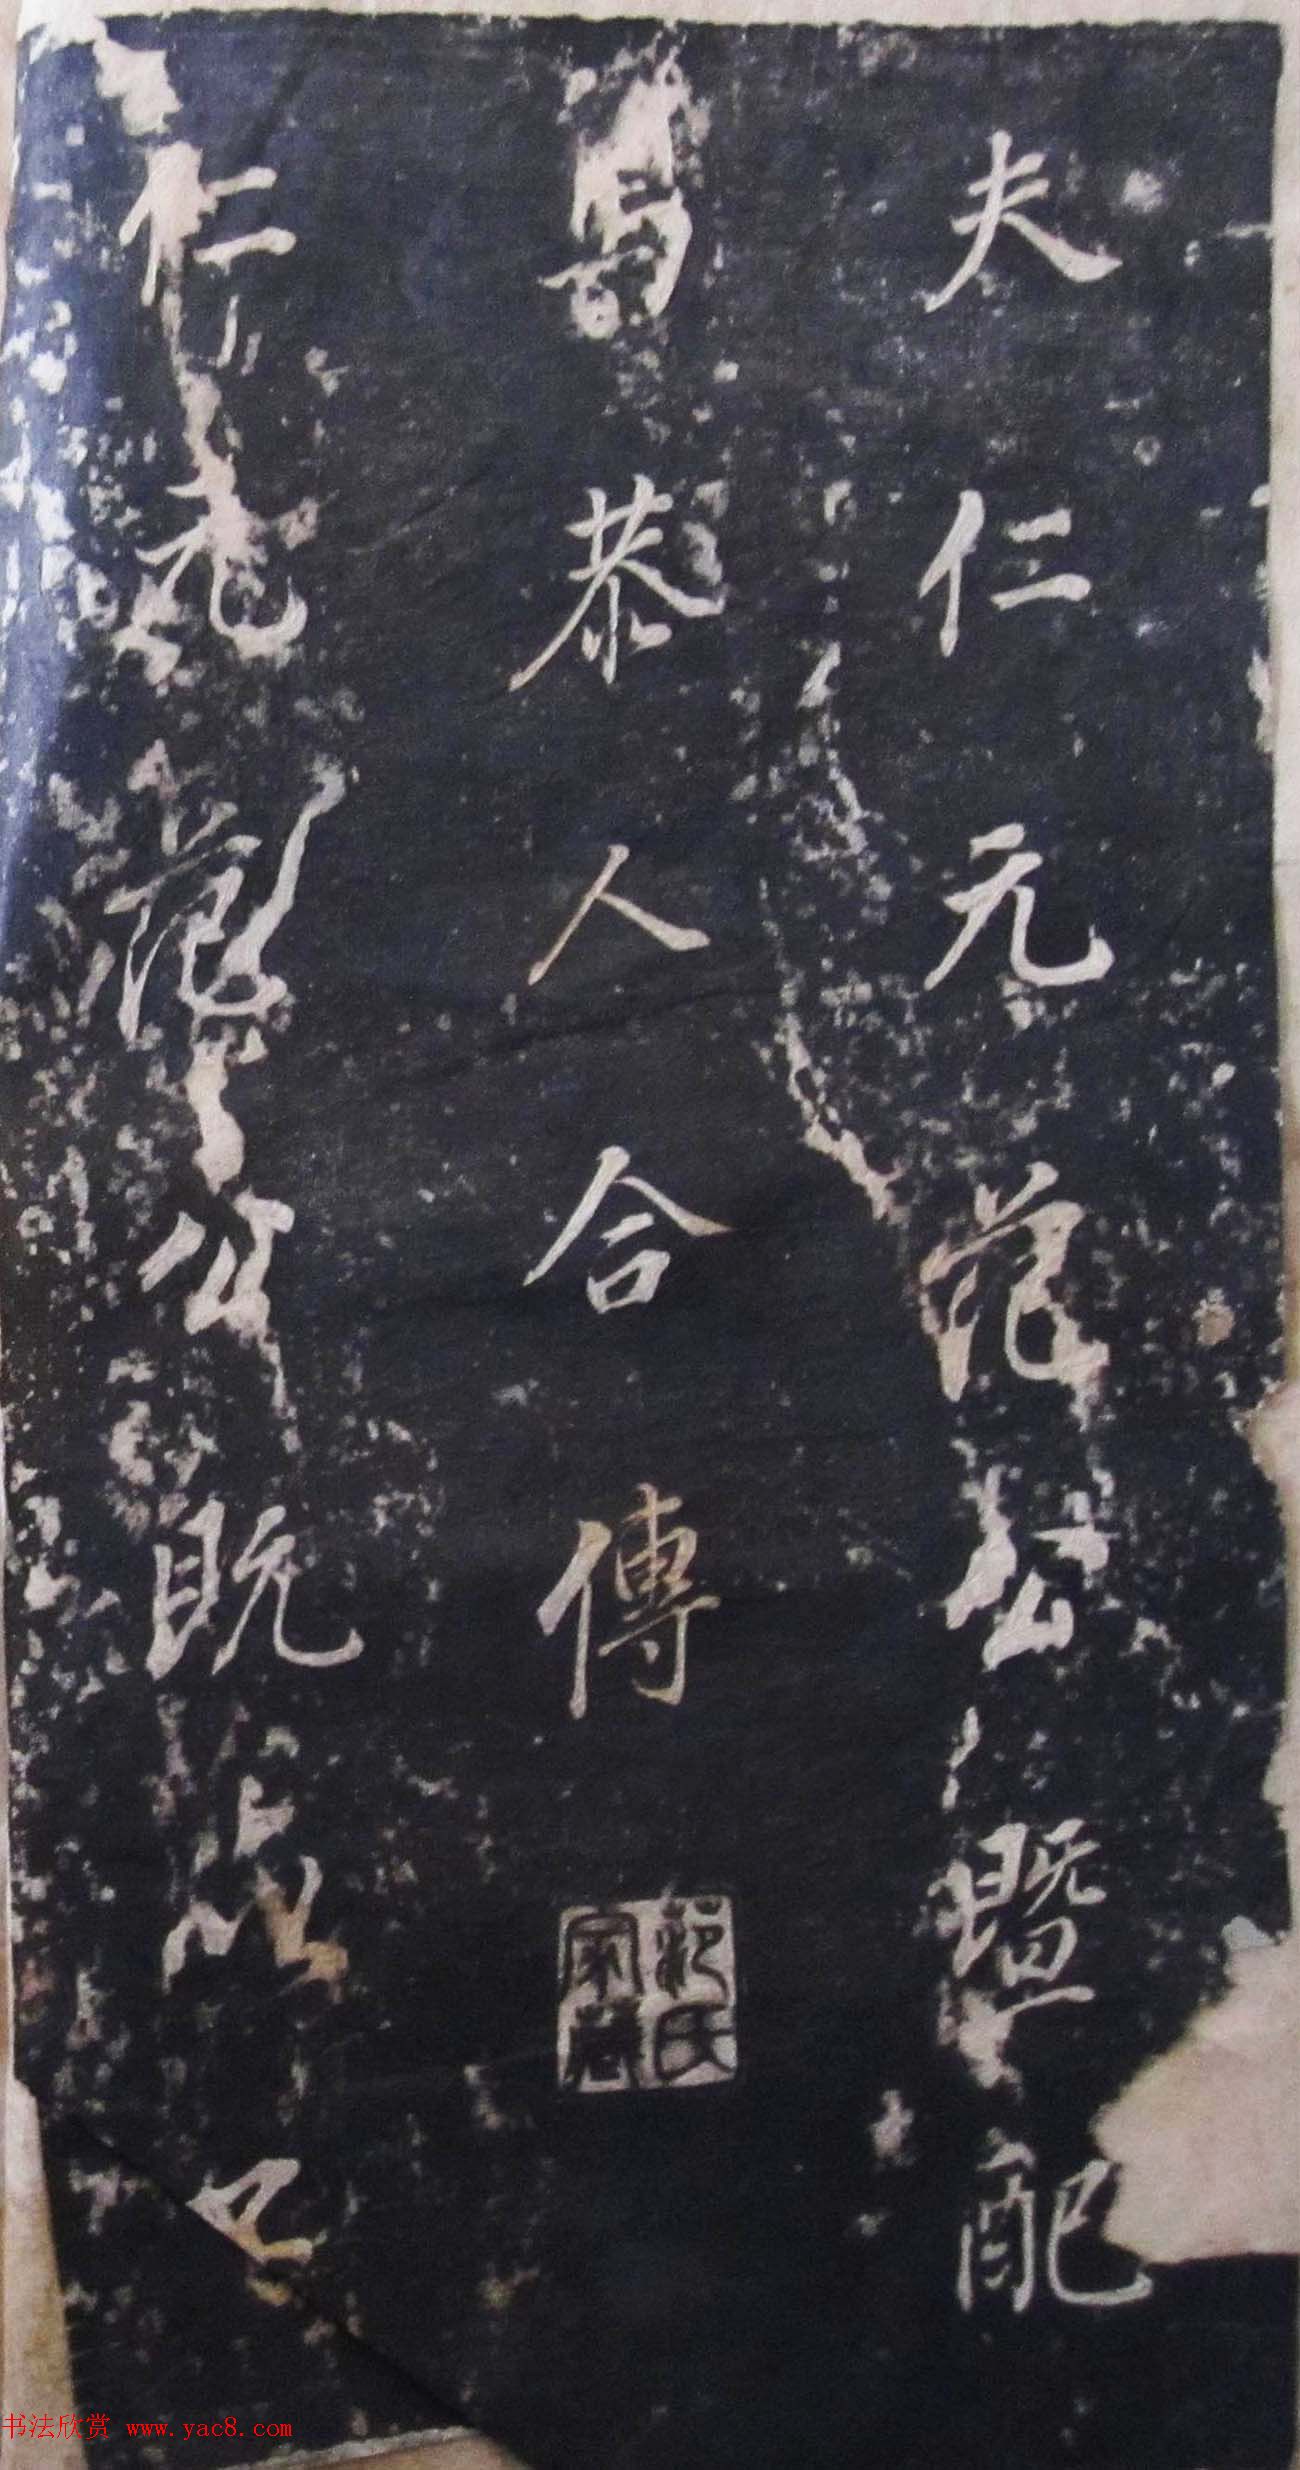 夫仁元范公暨配
馬恭人合傳
范氏家藏
仁元范公既上以己
书法欣赏 www.yac8.com